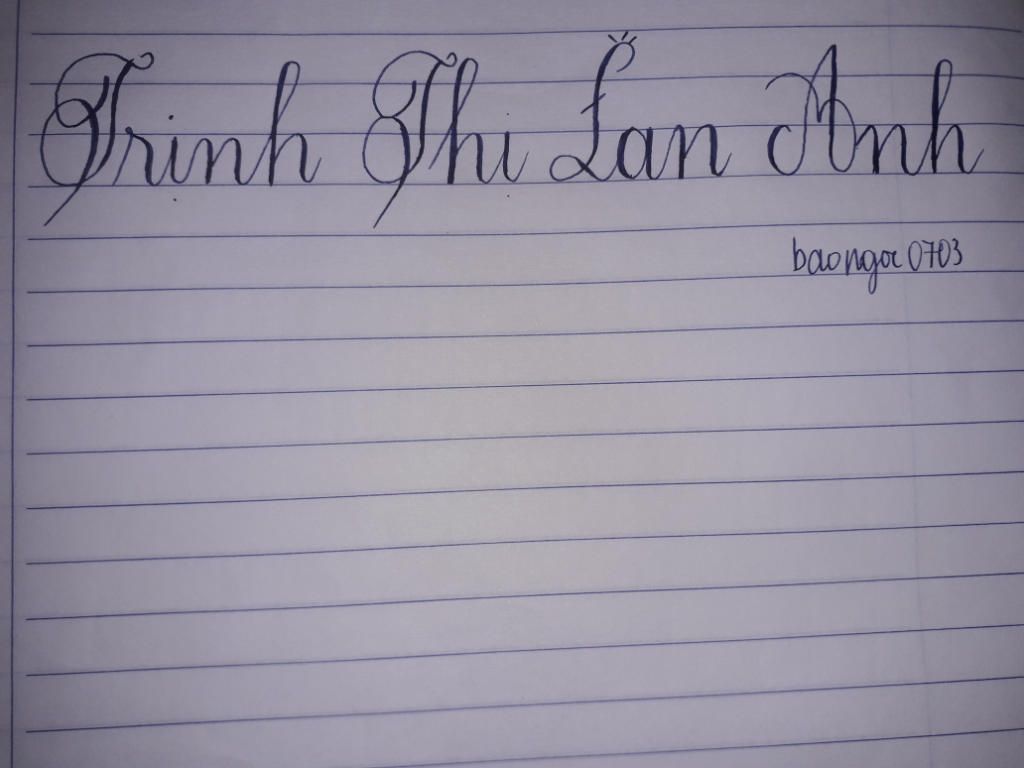 Trịnh Thị Lan Anh
baongoc0703